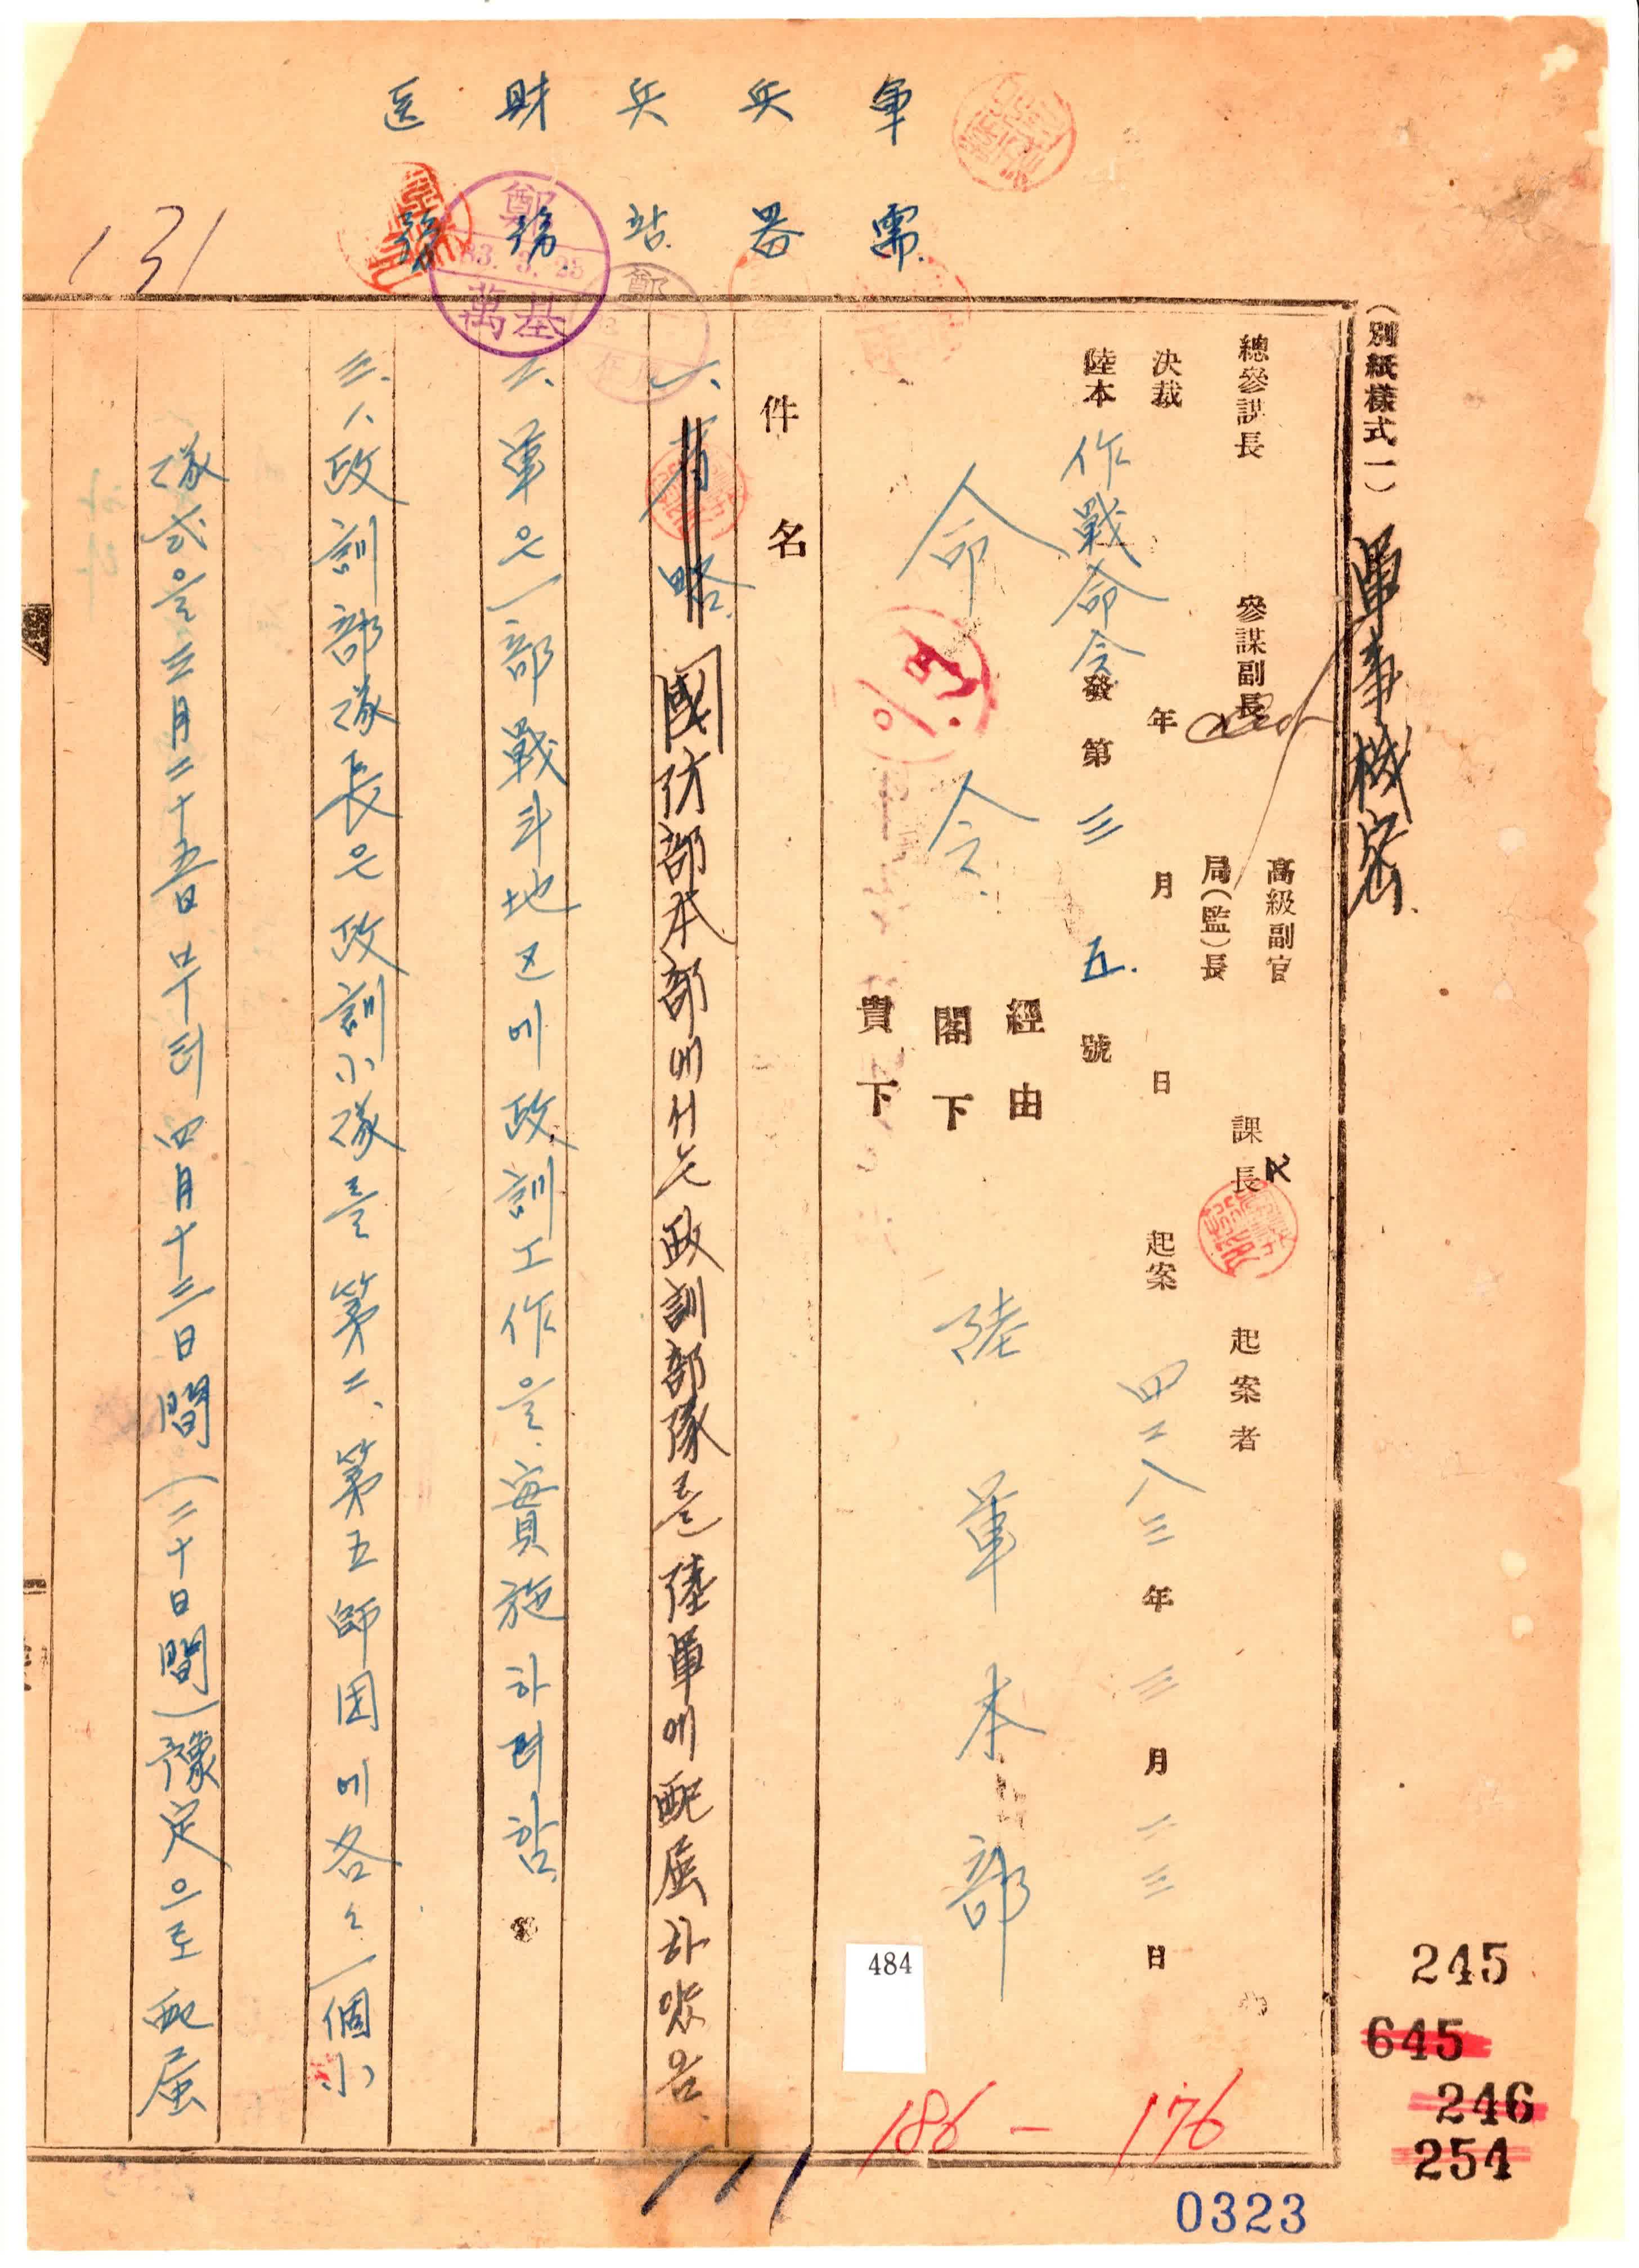 (別紙樣式一) 軍事機密
軍需
兵器
兵站
財務
医務
131
鄭
83. 3. 25
萬基
總參謀長 參謀副長 高級副官 課長 起案者
局(監)長
決裁 年 月 日 起案 四二八三年 三月 一三日
陸本 作戰命令 發 第 三五. 號
經由
命令. 閣下 陸軍本部
貴下
件名
一、 省略. 國防部本部에서는 政訓部隊를 陸軍에 配屬하였음
二、軍은 一部戰斗地区에 政訓工作을 實施하려함.
三、人政訓部隊長은 政訓小隊를 第二、第五師団에 各々 一個小
隊式을 三月二十五日부터 四月十三日間(二十日間)豫定으로 配屬
484
186 - 176
245
645
246
254
0323